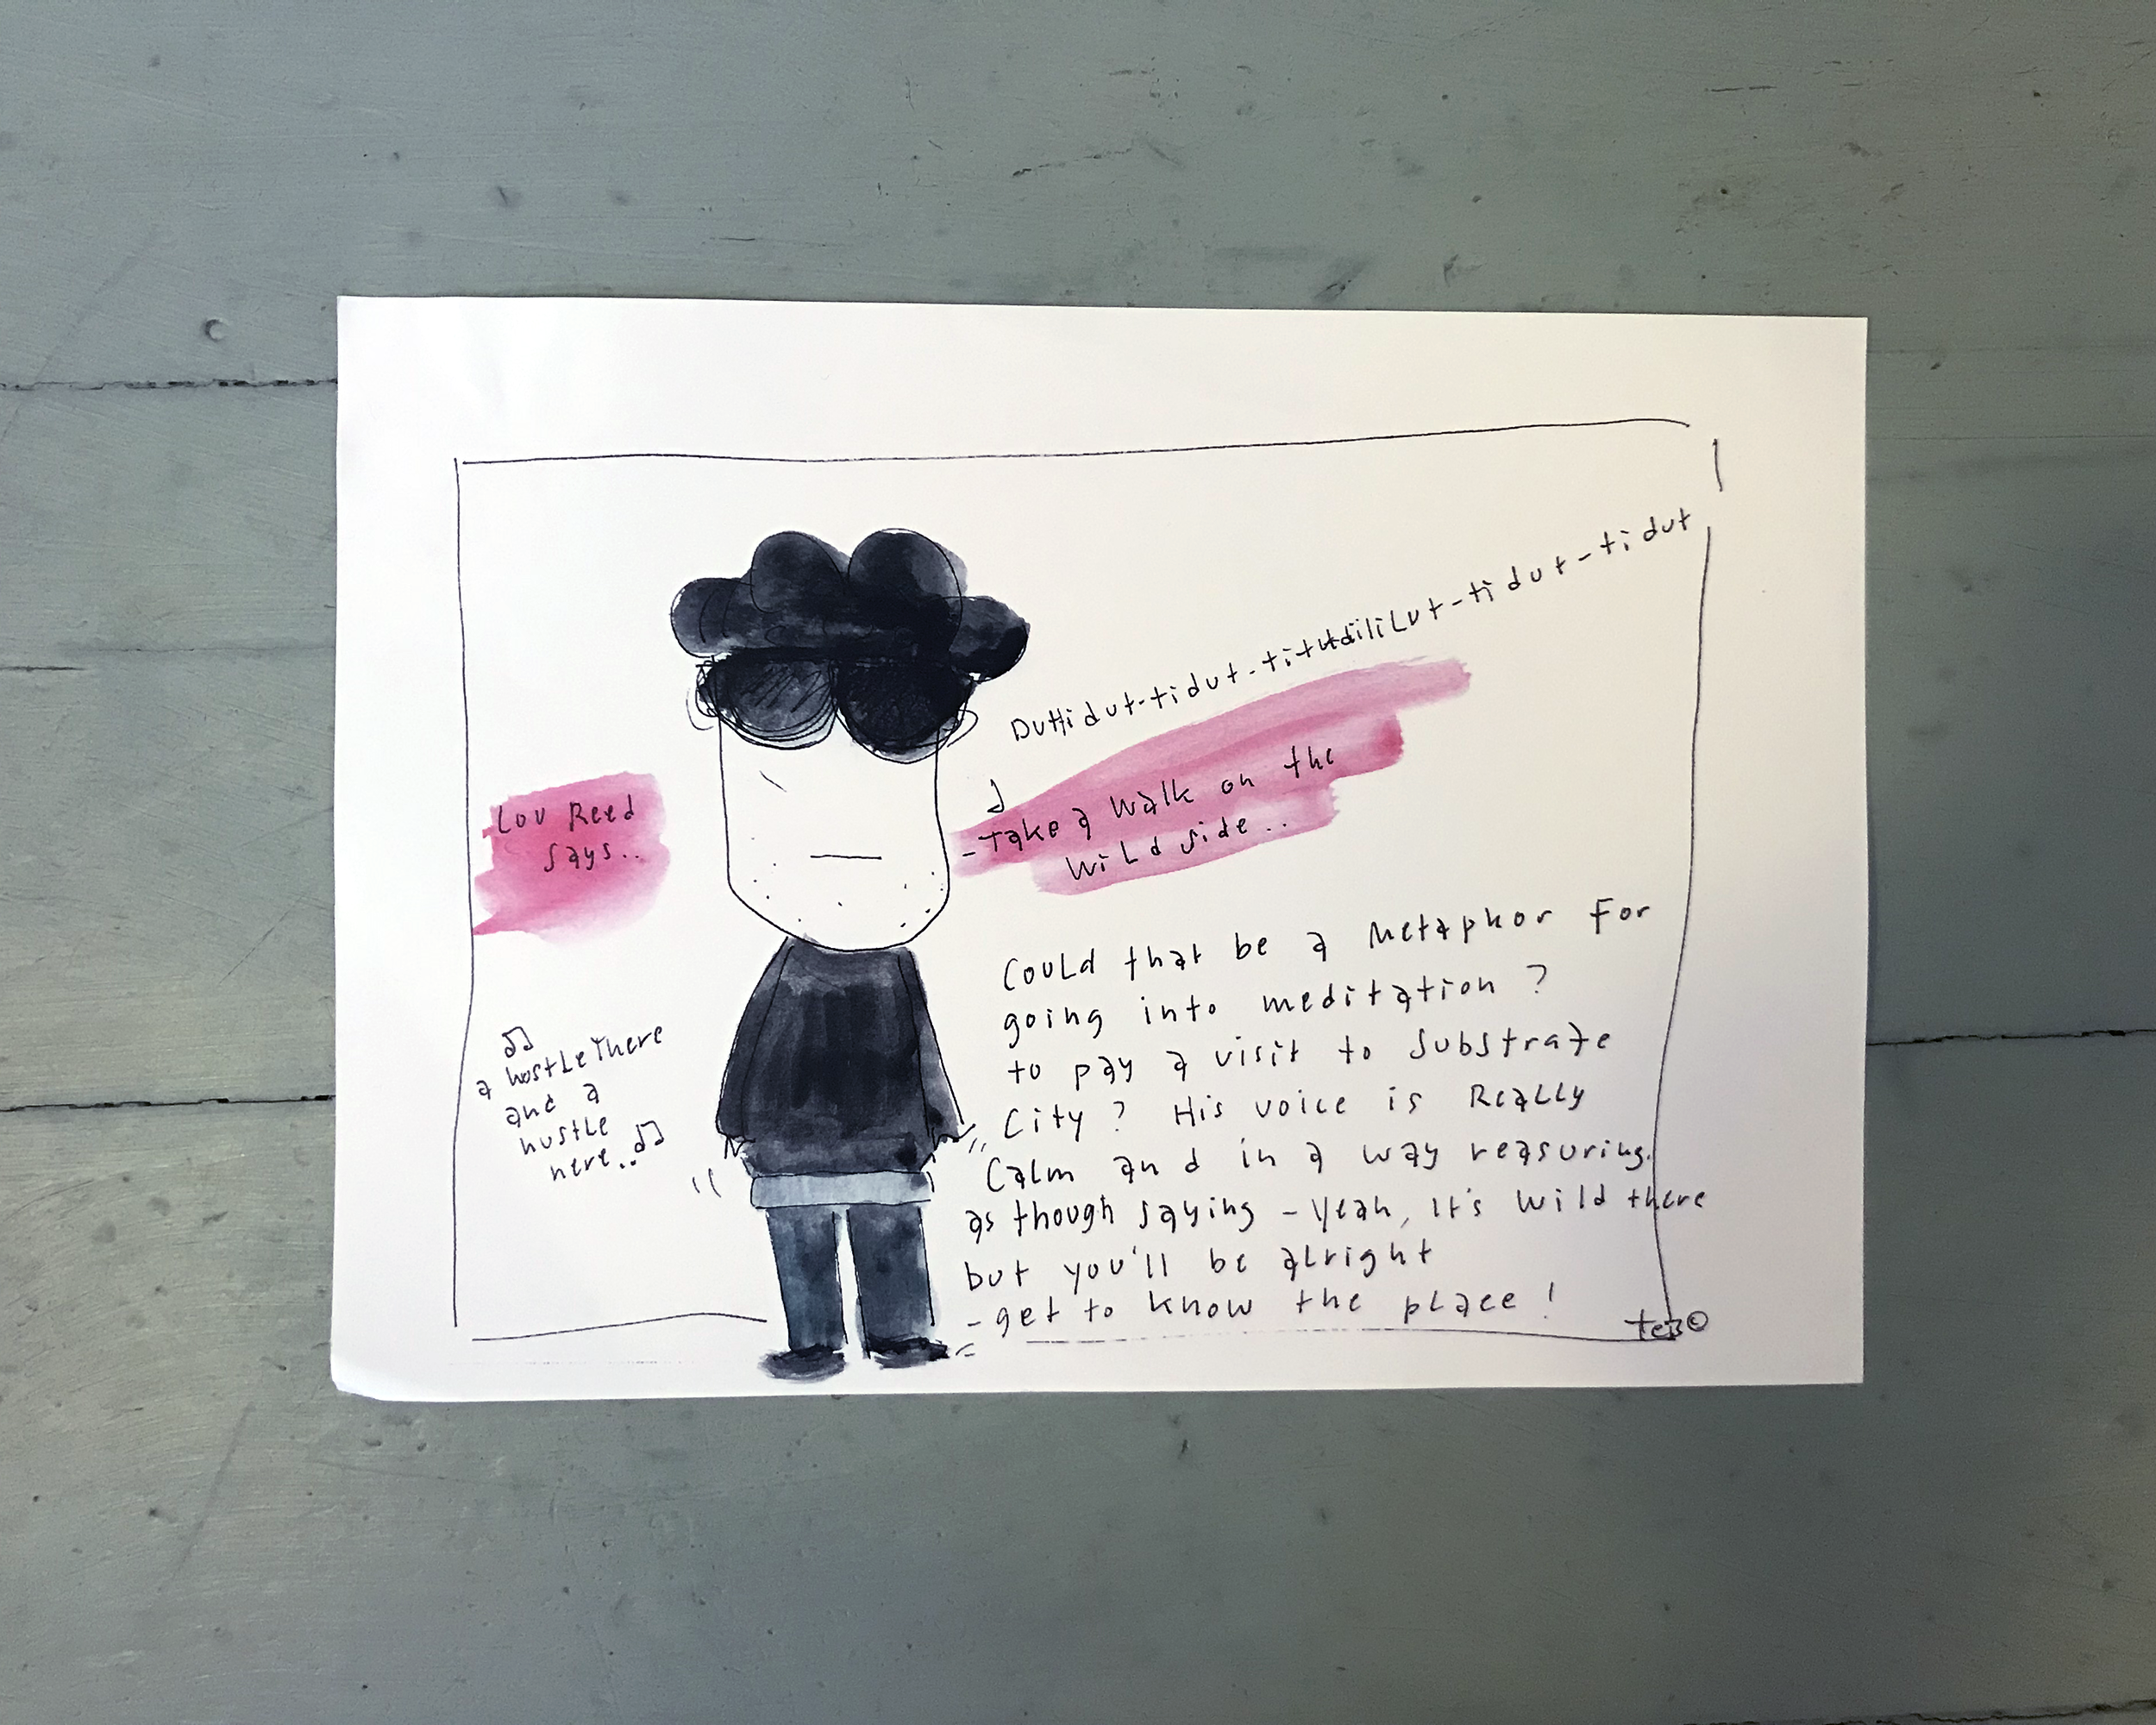 Duttidut-tidut-titutdiliLut-tidut-tidut
Lou Reed
says..
-Take a walk on the
wild side..
Could that be a metaphor for
going into meditation ?
to pay a visit to substrate
City ? His voice is Really
Calm and in a way reasuring.
as though saying - Yeah, It's wild there
but you'll be alright
- get to know the place !
a hostle There
and a
hustle
here..
teB©